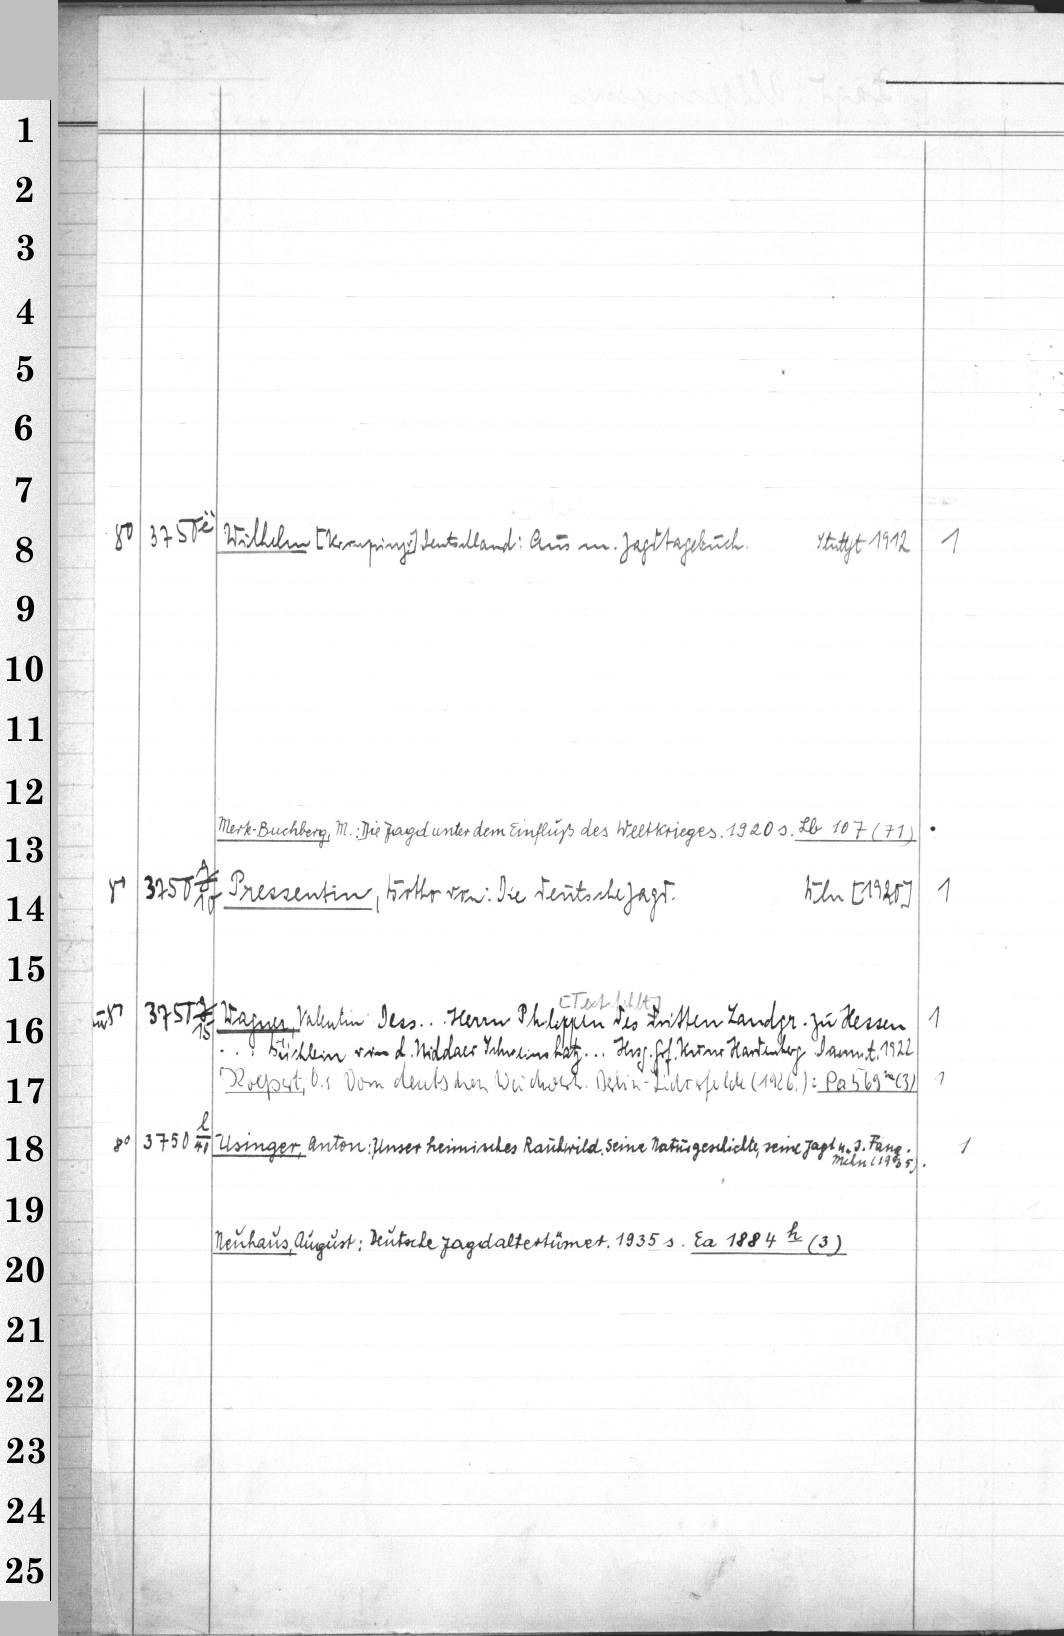 1
2
3
4
5
6
7
8⁰ 3750 ë Wilhelm [Kronprinz] Deutschland: Aus m. Jagdtagebuch. Stuttgt 1912 1
8
9
10
11
12
Merk-Buchberg, M.: Die Jagd unter dem Einfluß des Weltkrieges. 1920 s. Lb 107 (71) .
13
8⁰ 3750 g/10 Pressentin, Botho von: Die deutsche Jagd. Bln [1925] 1
14
15
[Text fehlt]
8⁰ 3750 g/15 Wagner, Valentin: Dess... Herrn Philippen des Dritten Landgr. zu Hessen 1
16
... Büchlein von d. Niddaer Schweinshatz... Hrsg. Graf Kuno Hardenberg Darmst. 1922
Koepert, O.: Vom deutschen Weidwerk. Berlin-Lichterfelde (1926.): Pa 569 m (3) 1
17
8⁰ 3750 l/41 Usinger, Anton: Unser heimisches Raubwild. Seine Naturgeschichte, seine Jagd u. s. Fang. 1
18
Mchn (1935).
19
Neuhaus, August: Deutsche Jagdaltertümer. 1935 s. Ea 1884 h (3)
20
21
22
23
24
25